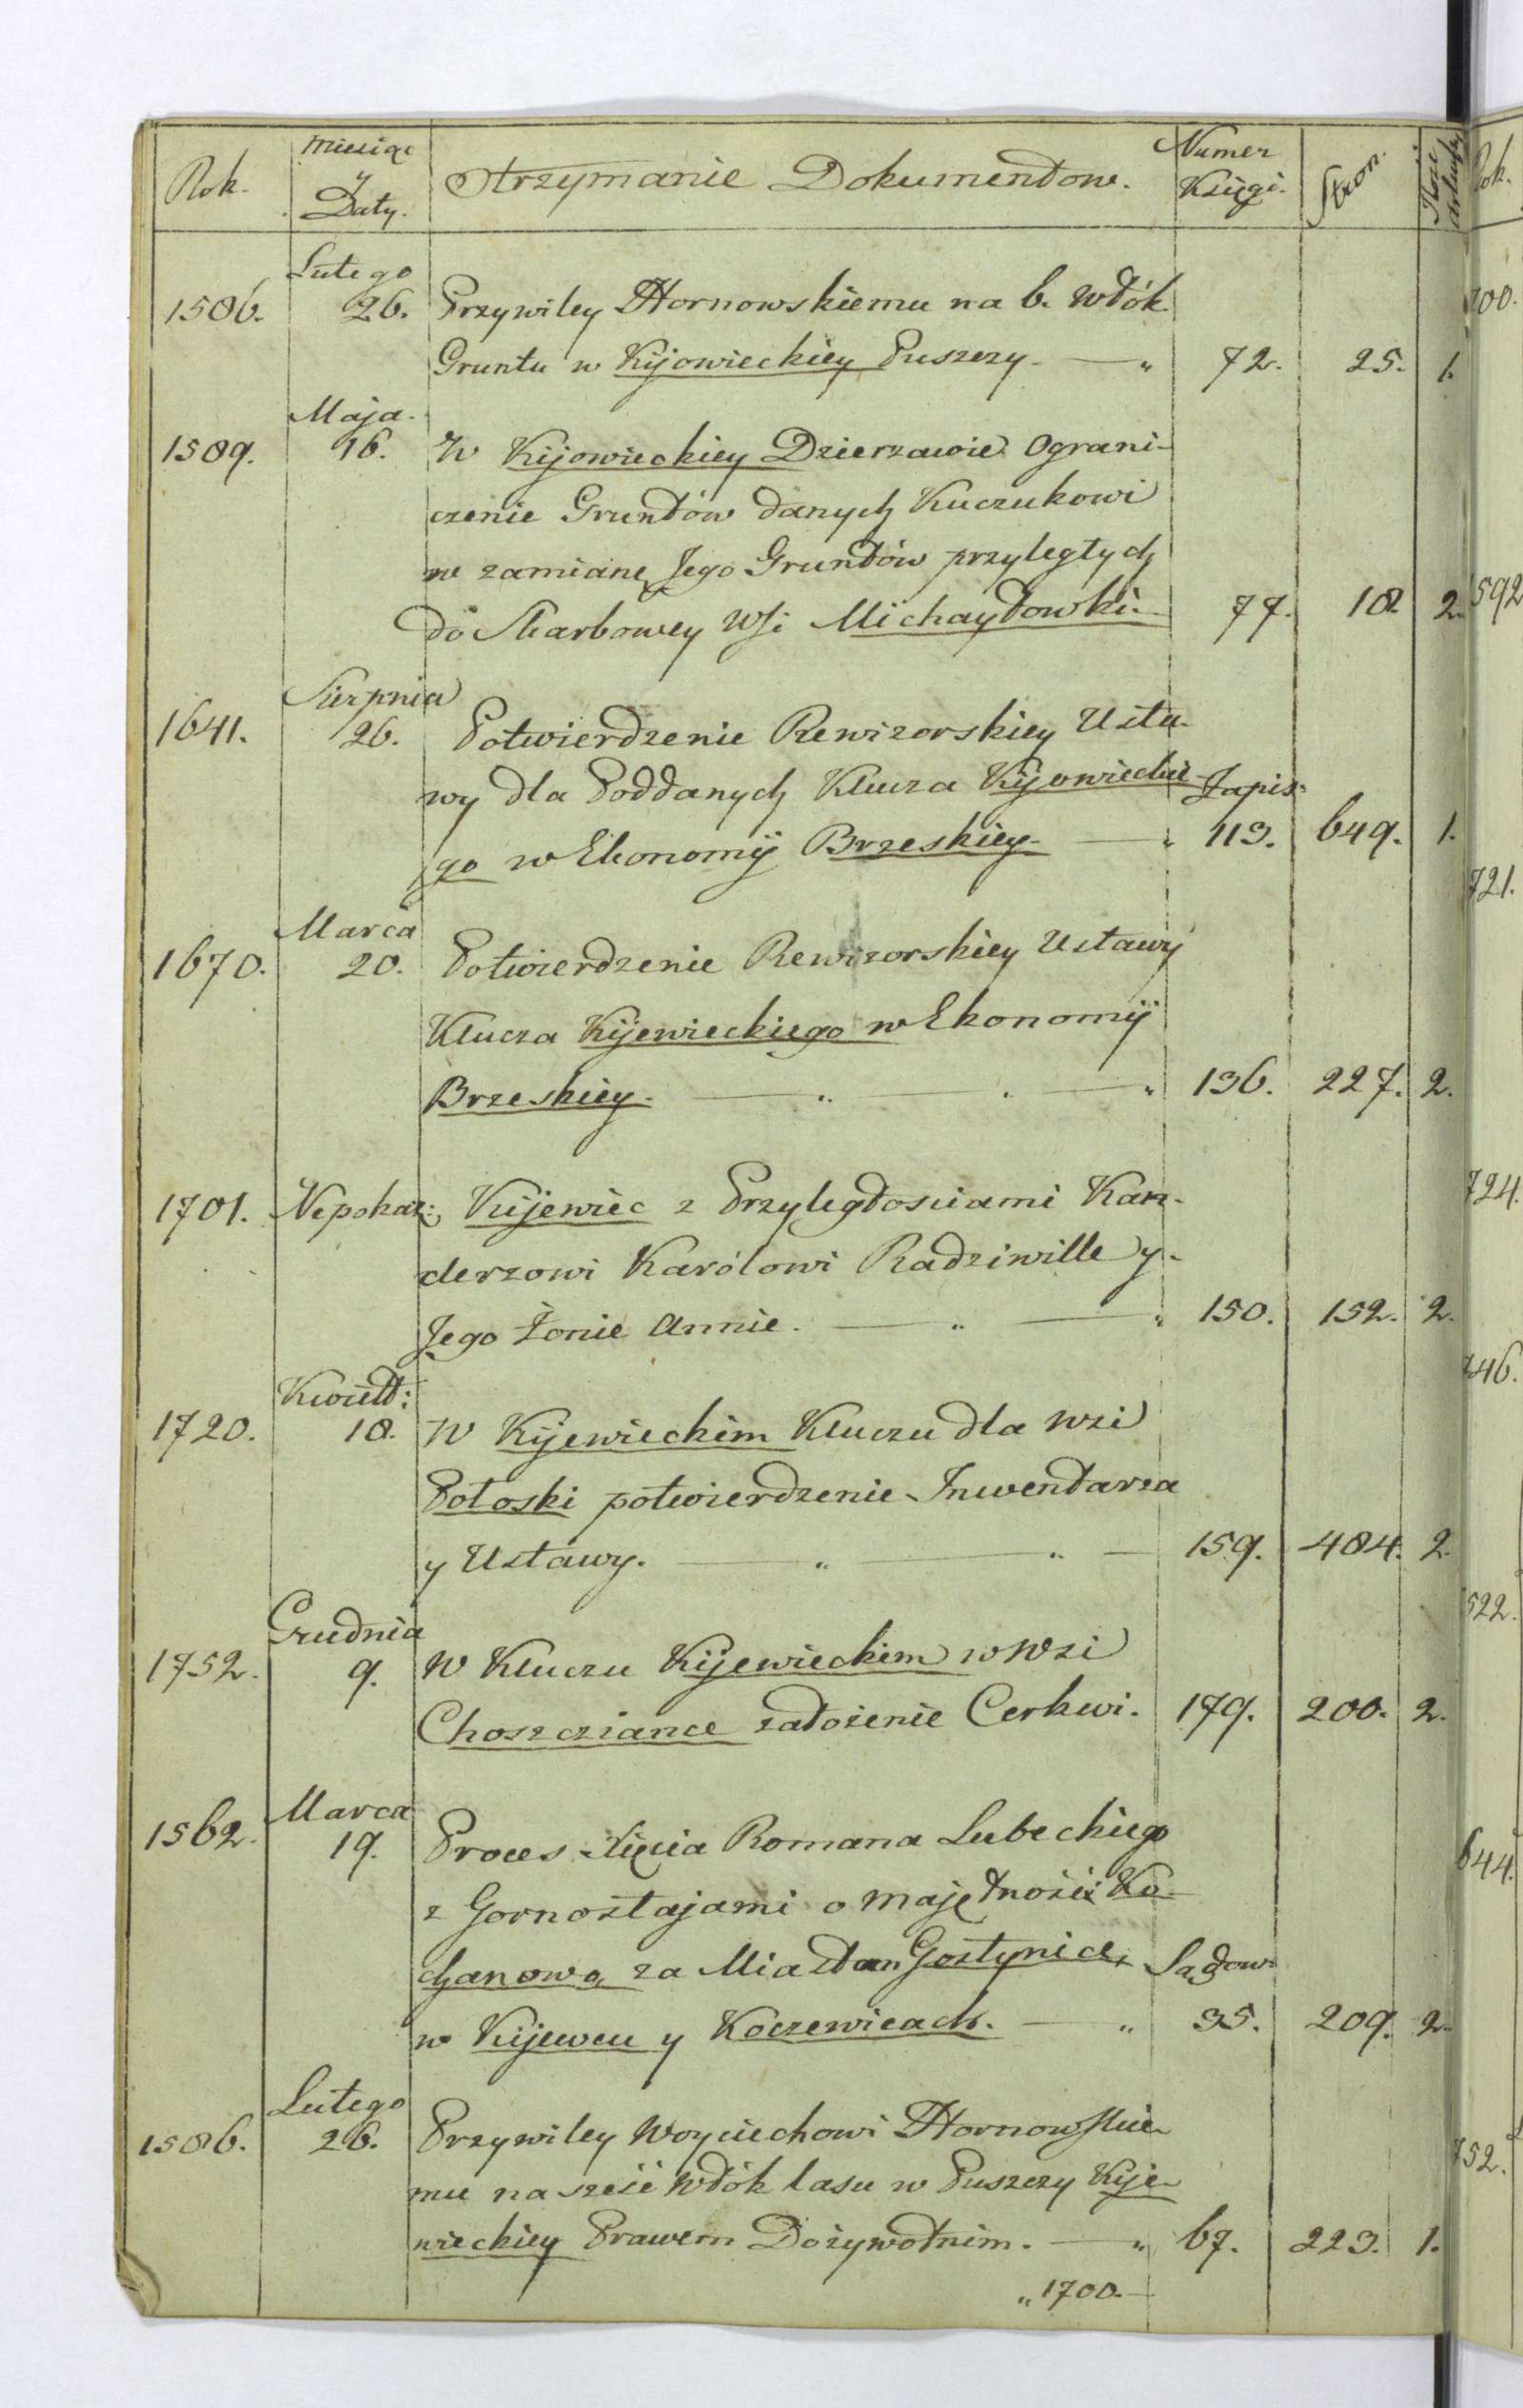 Rok. Miesiąc y Daty. Otrzymanie Dokumentow. Numer Księgi. Stron.
Lutego
1586. 26. Przywiley Hornowskiemu na 6. włók
Gruntu w Kijowieckiey Puszczy. — „ 72. 25. 1.
Maja.
1589. 16. W Kijowieckiey Dzierzawie Ograni-
czenie Gruntów danych Kuczukowi
w zamianę Jego Gruntów przyległych
do Skarbowey Wsi Michayłowki. 77. 18. 2.
Sierpnia
1641. 26. Potwierdzenie Rewizorskiey Usta-
wy dla Poddanych Klucza Kijowieckie- Zapis:
go w Ekonomij Brzeskiey. — „ 113. 649. 1.
Marca
1670. 20. Potwierdzenie Rewizorskiey Ustawy
Klucza Kijewieckiego w Ekonomij
Brzeskiey. — „ — „ 136. 227. 2.
1701. Nepokaz: Kijewiec z Przyległosciami Kan-
clerzowi Karólowi Radziwille y-
Jego Żonie Annie. — „ — „ 150. 152. 2.
Kwiet:
1720. 18. W Kijewieckim Kluczu dla wsi
Potoski potwierdzenie Inwentarza
y Ustawy. — „ — „ — 159. 484. 2.
Grudnia
1752. 9. W Kluczu Kijewieckim w Wsi
Choszcziance założenie Cerkwi. 179. 200. 2.
Marca
1562. 19. Proces Xięcia Romana Lubeckiego
z Gornostajami o majętność Ko-
chanowo, za Miastem Gostynice, Sądow:
w Kijewcu y Koczewicach. — „ 35. 209. 2.
Lutego
1586. 26. Przywiley Woyciechowi Hornowskie-
mu na sześć włók lasu w Puszczy Kije-
wieckiey Prawem Dożywotnim. — „ 67. 223. 1.
„ 1700.—
Rok.
700.
592
721.
724.
746.
522.
644.
752.